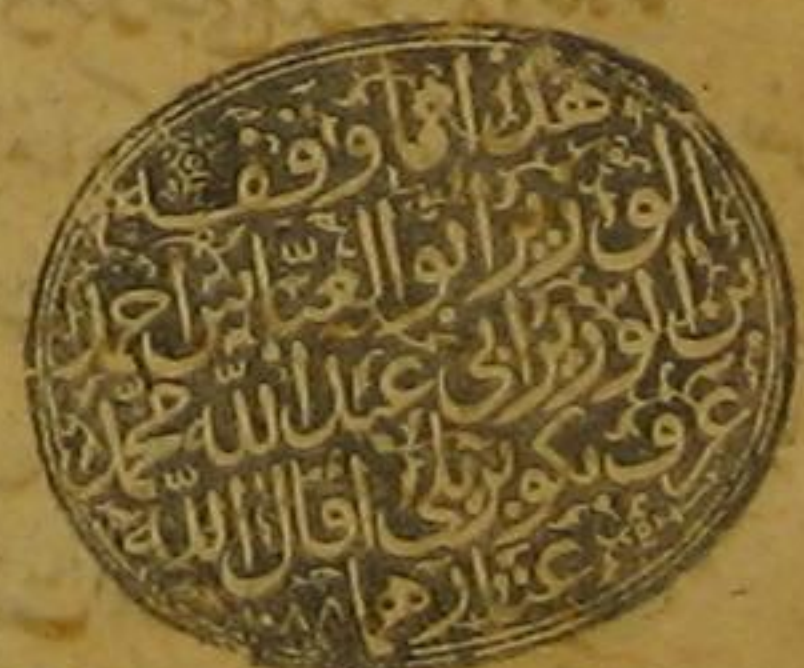 هذا مما وقفه
الوزير ابو العباس احمد
بن الوزير ابي عبد الله محمد
عرف بكوبريلى اقال الله
عثارهما
١٠٨٨